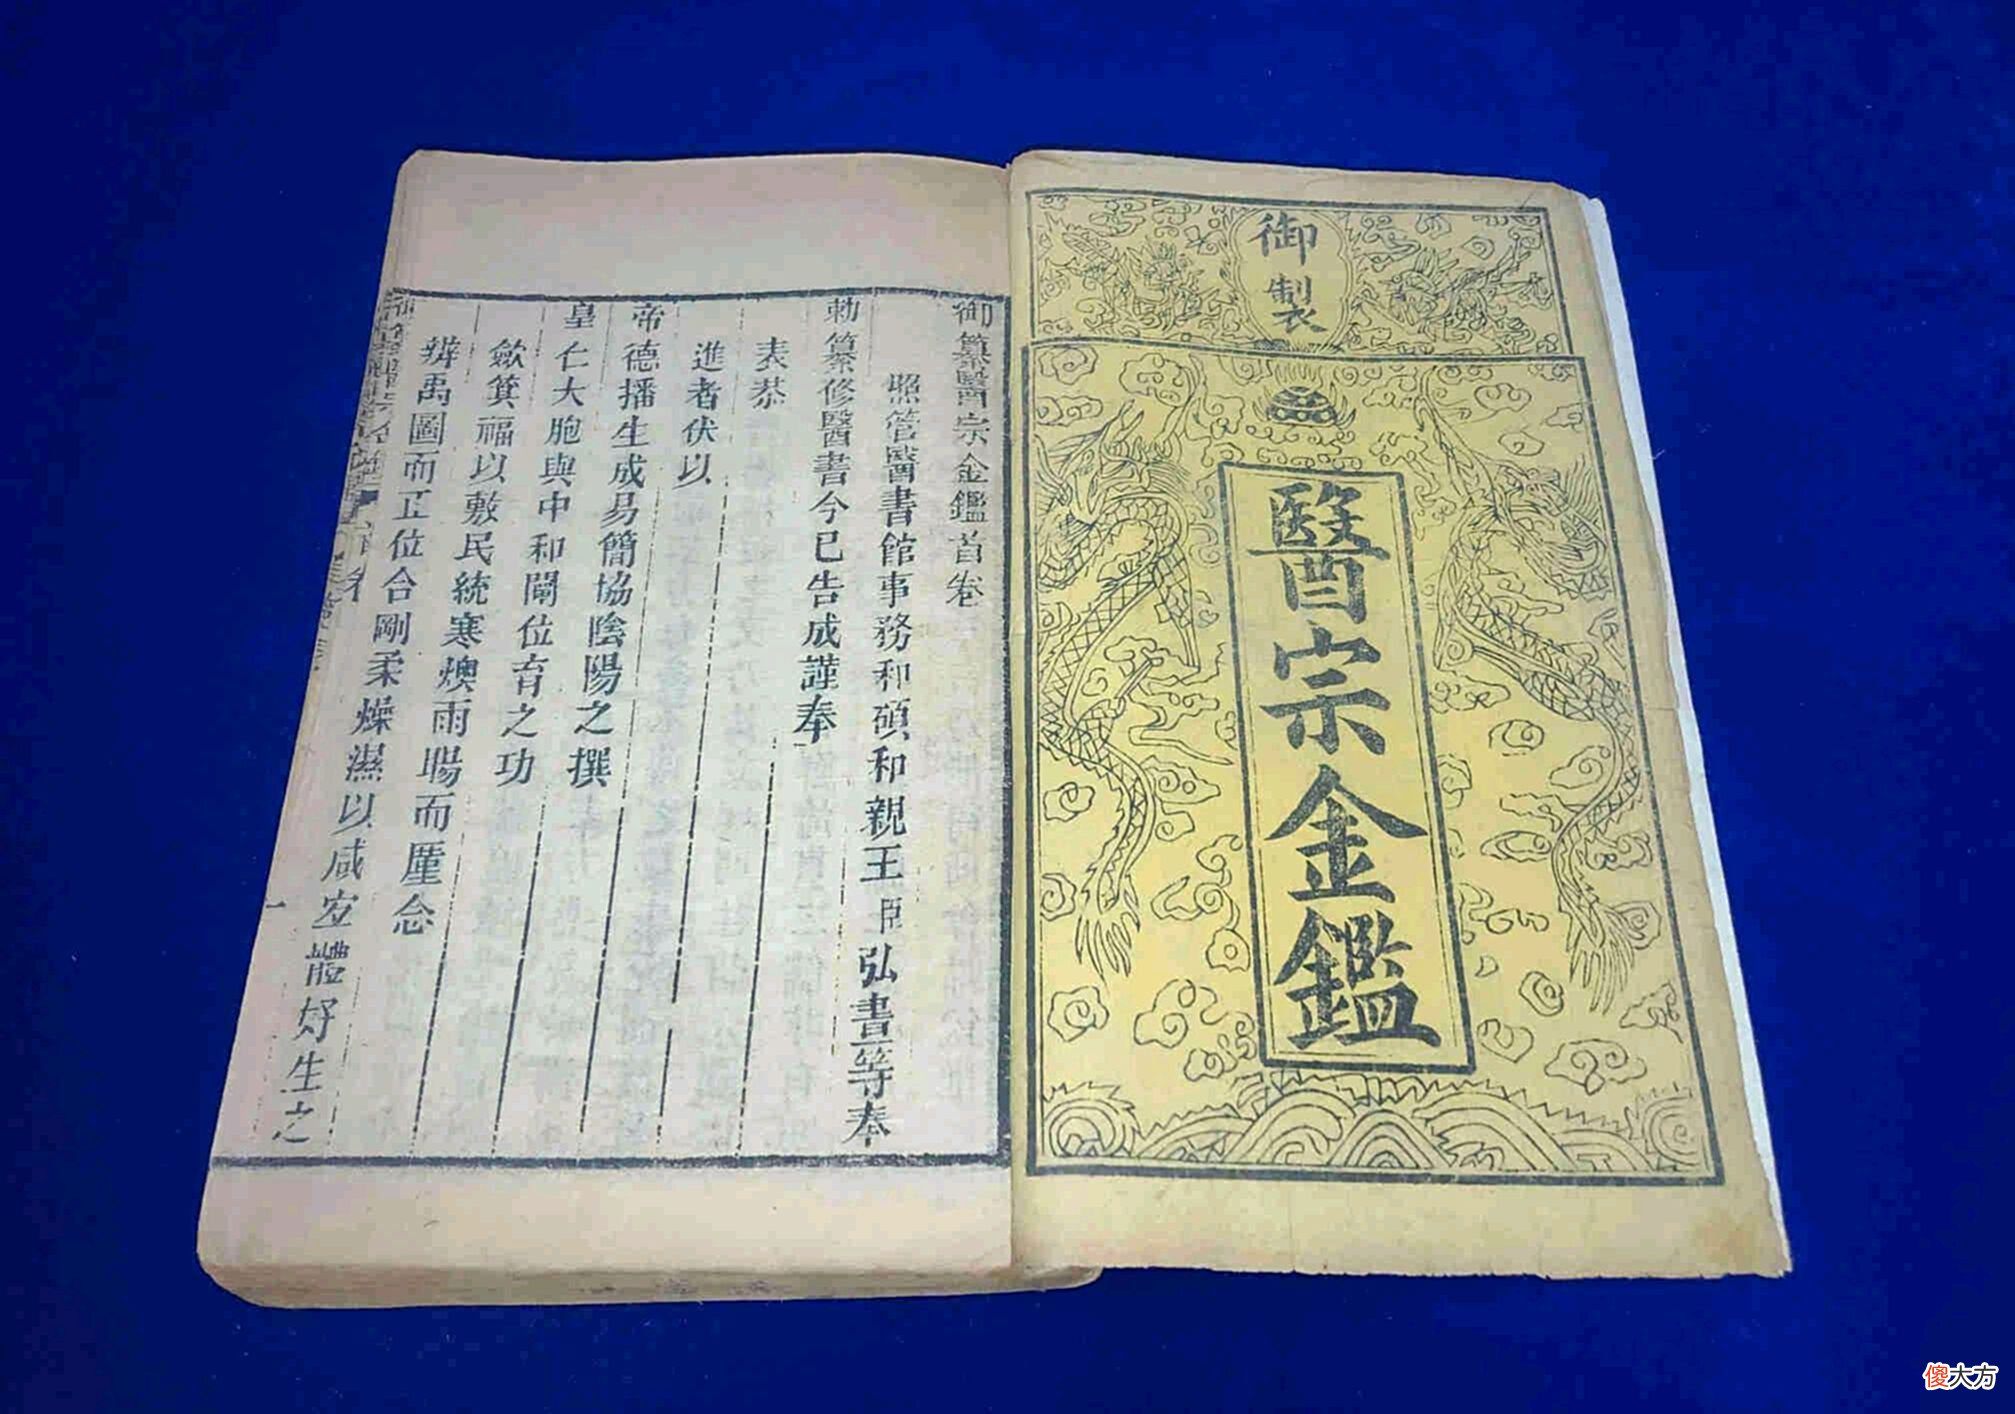 御製
醫宗金鑑
御纂醫宗金鑑首卷
照管醫書館事務和碩和親王臣弘晝等奉
勅纂修醫書今已告成謹奉
表恭
進者伏以
帝德播生成易簡協陰陽之撰
皇仁大胞與中和闡位育之功
斂箕福以敷民統寒燠雨暘而厪念
辨禹圖而正位合剛柔燥濕以咸宜體好生之
傻大方